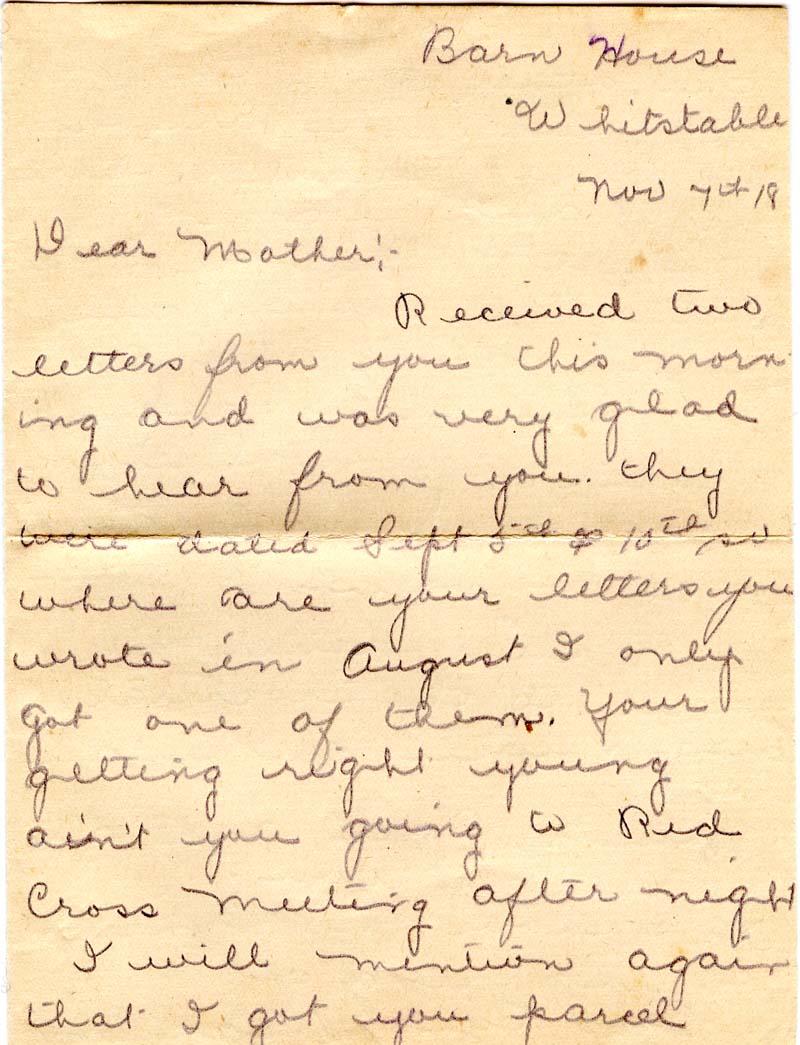 Barn House
Whitstable
Nov 7th 18
Dear Mother;-
Received two
letters from you this morn
ing and was very glad
to hear from you. they
were dated Sept 5th & 10th so
where are your letters you
wrote in August I only
got one of them. Your
getting right young
ain't you going to Red
Cross Meeting after night
I will mention again
that I got you parcel